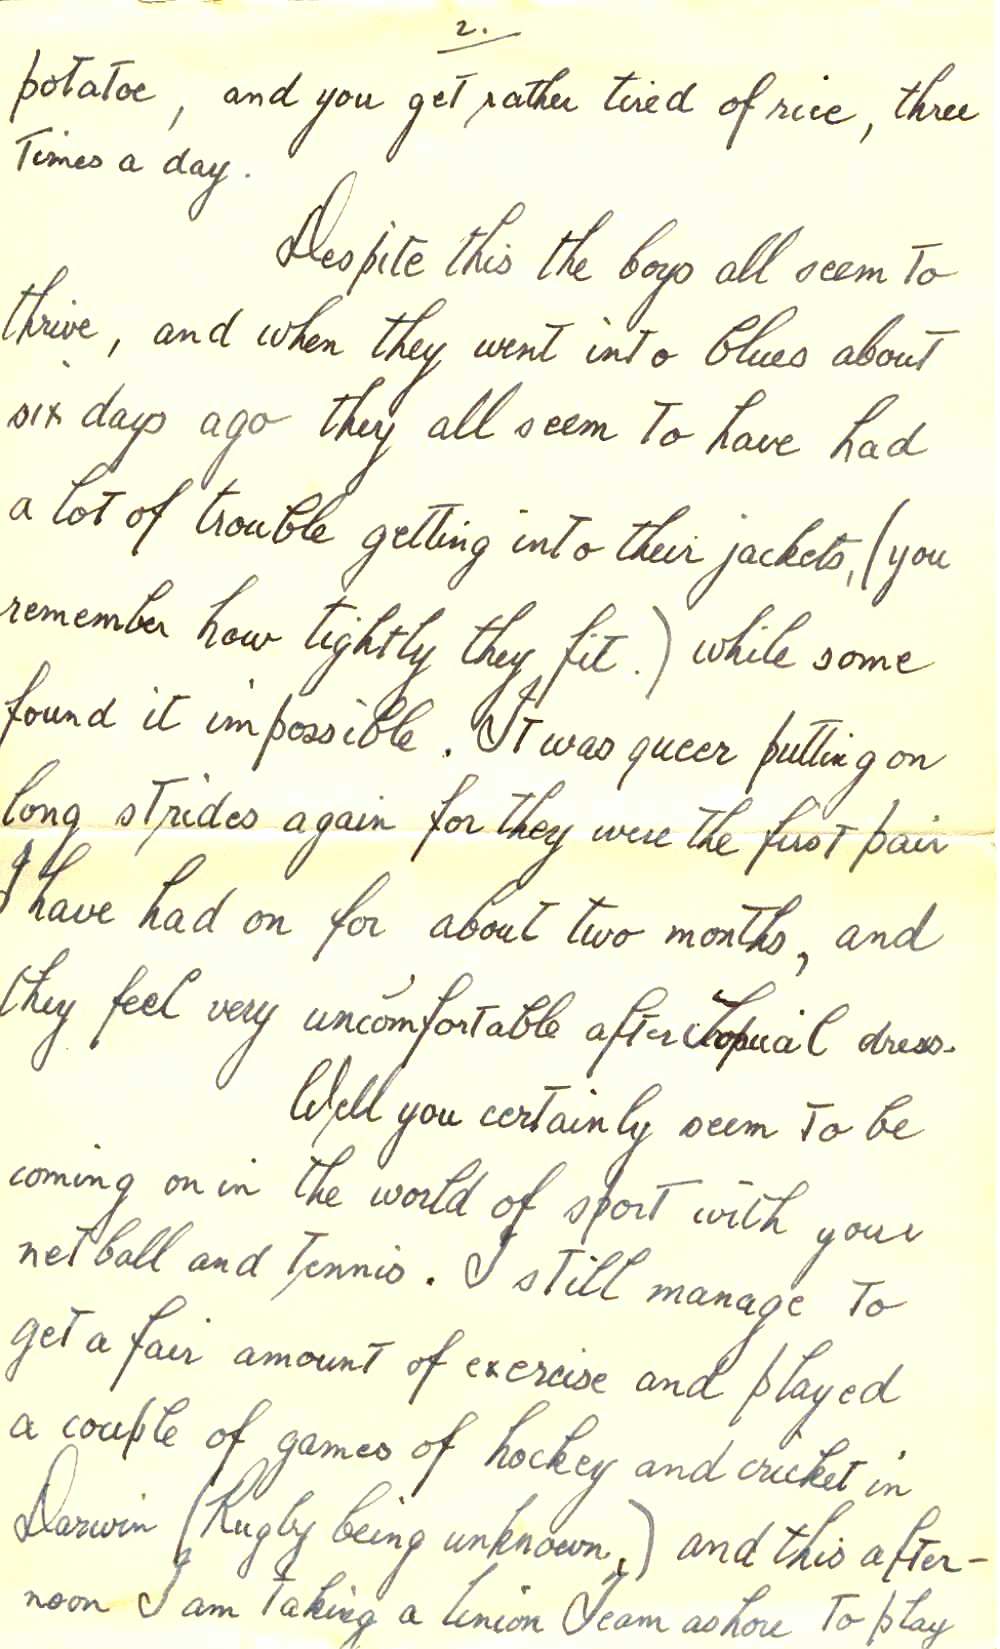 2.
potatoe, and you get rather tired of rice, three
times a day.
Despite this the boys all seem to
thrive, and when they went into blues about
six days ago they all seem to have had
a lot of trouble getting into their jackets, (you
remember how tightly they fit.) while some
found it impossible. It was queer putting on
long strides again for they were the first pair
I have had on for about two months, and
they feel very uncomfortable after tropical dress.
Well you certainly seem to be
coming on in the world of sport with your
netball and tennis. I still manage to
get a fair amount of exercise and played
a couple of games of hockey and cricket in
Darwin (Rugby being unknown,) and this after-
noon I am taking a Union Team ashore to play